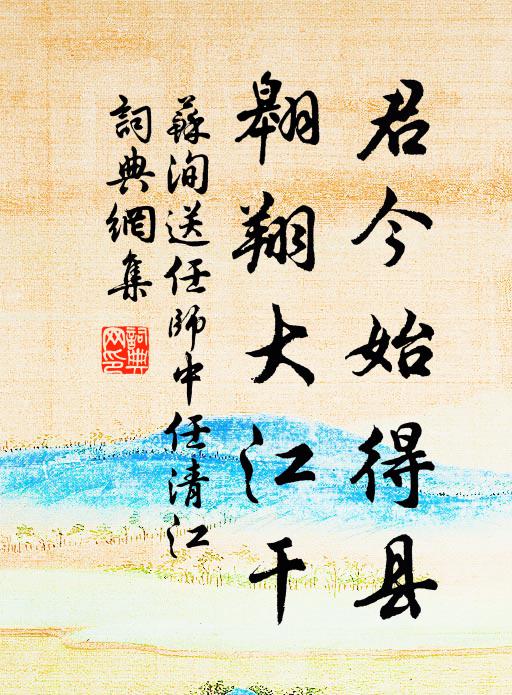 君今始得县
翱翔大江干
蘇洵送任師中任清江
詞典網集
詞典网印